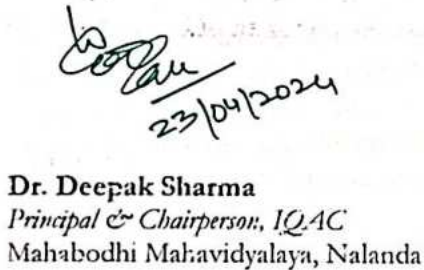 23/04/2024
Dr. Deepak Sharma
Principal & Chairperson, IQAC
Mahabodhi Mahavidyalaya, Nalanda